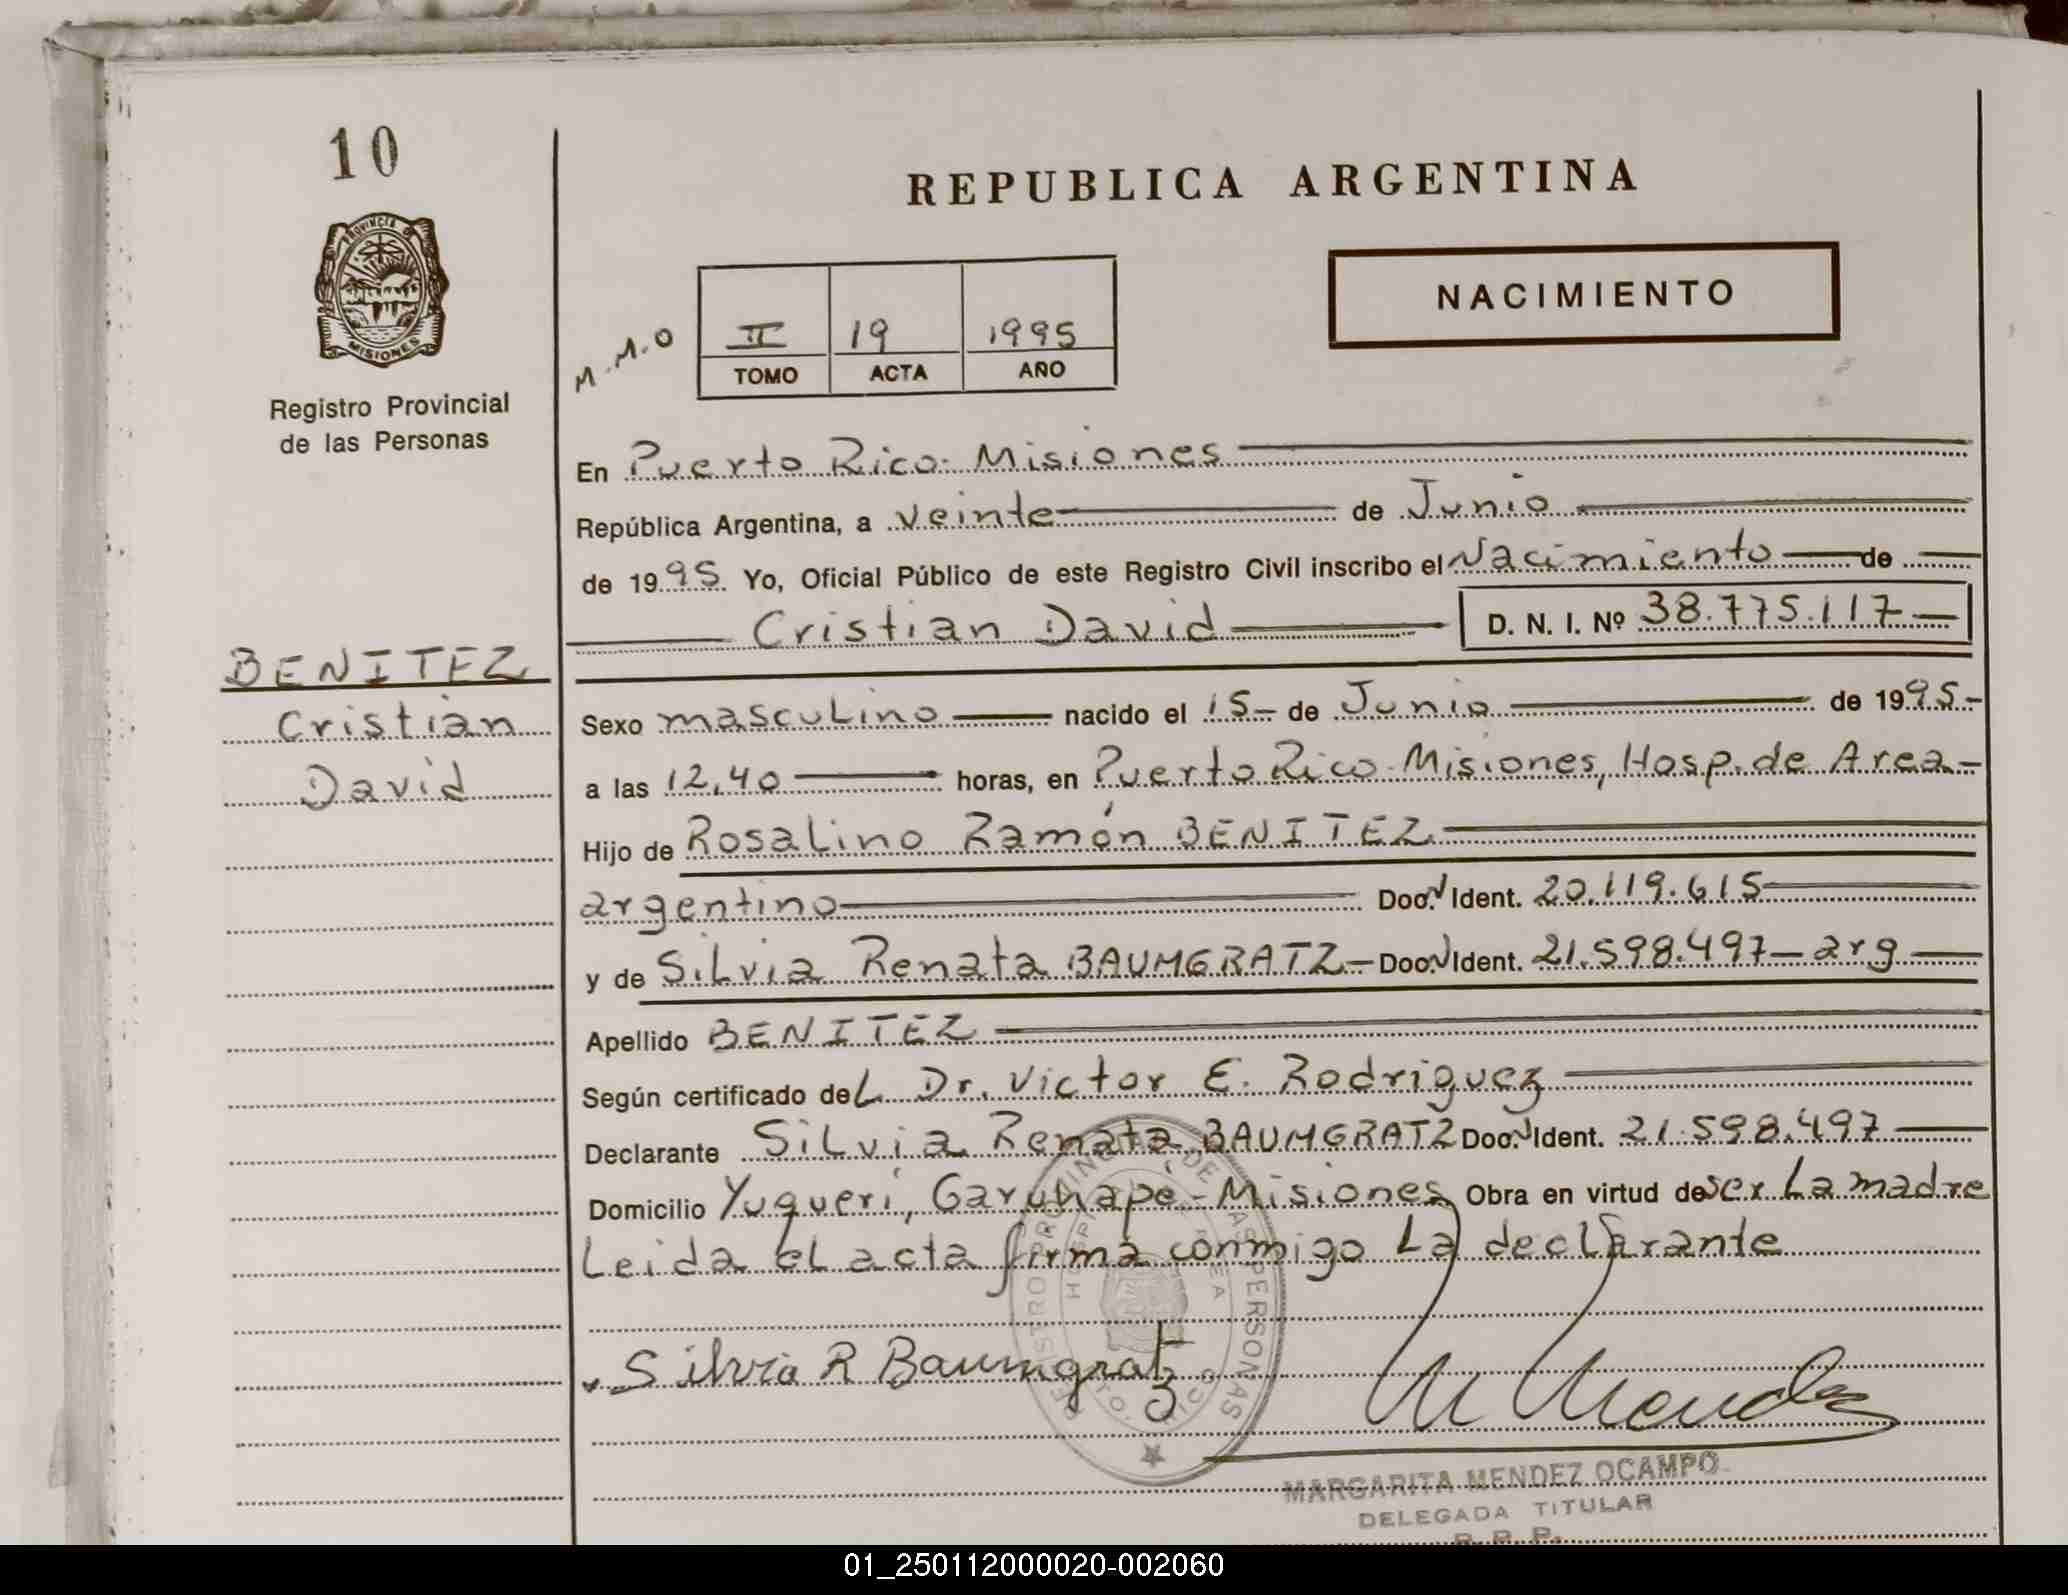 10
REPUBLICA ARGENTINA
PROVINCIA DE
MISIONES
NACIMIENTO
M.M.O
II 19 1995
TOMO ACTA AÑO
Registro Provincial
de las Personas
En Puerto Rico - Misiones
República Argentina, a veinte de Junio
de 1995 Yo, Oficial Público de este Registro Civil inscribo el Nacimiento de
Cristian David D. N. I. Nº 38.775.117-
BENITEZ
Cristian
David
Sexo masculino nacido el 15- de Junio de 1995-
a las 12,40 horas, en Puerto Rico - Misiones, Hosp. de Area-
Hijo de Rosalino Ramón BENITEZ
argentino Doc. Ident. 20.119.615
y de Silvia Renata BAUMGRATZ- Doc. Ident. 21.598.497- arg
Apellido BENITEZ
Según certificado del Dr. Victor E. Rodriguez
Declarante Silvia Renata BAUMGRATZ Doc. Ident. 21.598.497
Domicilio Yuqueri, Garuhapé - Misiones Obra en virtud de ser La madre
Leida el acta firma conmigo La declarante
REGISTRO PROVINCIAL DE LAS PERSONAS
HOSPITAL DE AREA
PTO. RICO
Silvia R Baumgratz
M Mendez
MARGARITA MENDEZ OCAMPO
DELEGADA TITULAR
R. P. P.
01_250112000020-002060